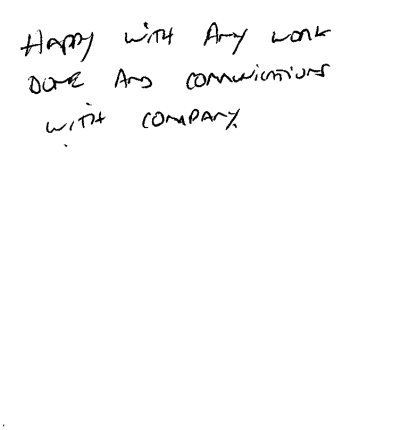 Happy with Any work
Done And communications
with company.